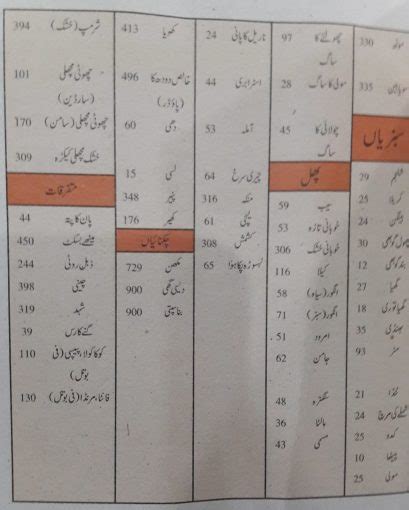 موٹھ 330
سویابین 335
سبزیاں
شلجم 29
کریلا 25
بینگن 24
پھول گوبھی 30
بند گوبھی 12
گھیا 27
گھیا توری 18
بھنڈی 35
مٹر 93
ٹنڈا 21
شملے کی مرچ 24
کدو 25
پیٹھا 10
مولی 25
چھولئے کا 97
ساگ
مولی کا ساگ 28
چولائی کا 45
ساگ
پھل
سیب 59
خوبانی تازہ 53
خوبانی خشک 306
کیلا 116
انگور (سیاہ) 58
انگور (سبز) 71
امرود 51
جامن 62
سنگترہ 48
مالٹا 36
مسمی 43
ناریل کا پانی 24
اسٹرابری 44
آملہ 53
چیری سرخ 64
منکہ 316
لیچی 61
کشمش 308
لسوڑہ پکا ہوا 65
کھویا 413
خالص دودھ کا 496
(پاؤڈر)
دہی 60
لسی 15
پنیر 348
کھیر 176
چکنائیاں
مکھن 729
دیسی گھی 900
بناسپتی 900
شرمپ (خشک) 394
چھوٹی مچھلی 101
(سارڈین)
چھوٹی مچھلی (سامن) 170
خشک مچھلی کیکڑہ 309
متفرقات
پان کا پتہ 44
میٹھے بسکٹ 450
ڈبل روٹی 244
چینی 398
شہد 319
گنے کا رس 39
کوکا کولا، پیپسی (فی 110
بوتل)
فانٹا، مرنڈا (فی بوتل) 130